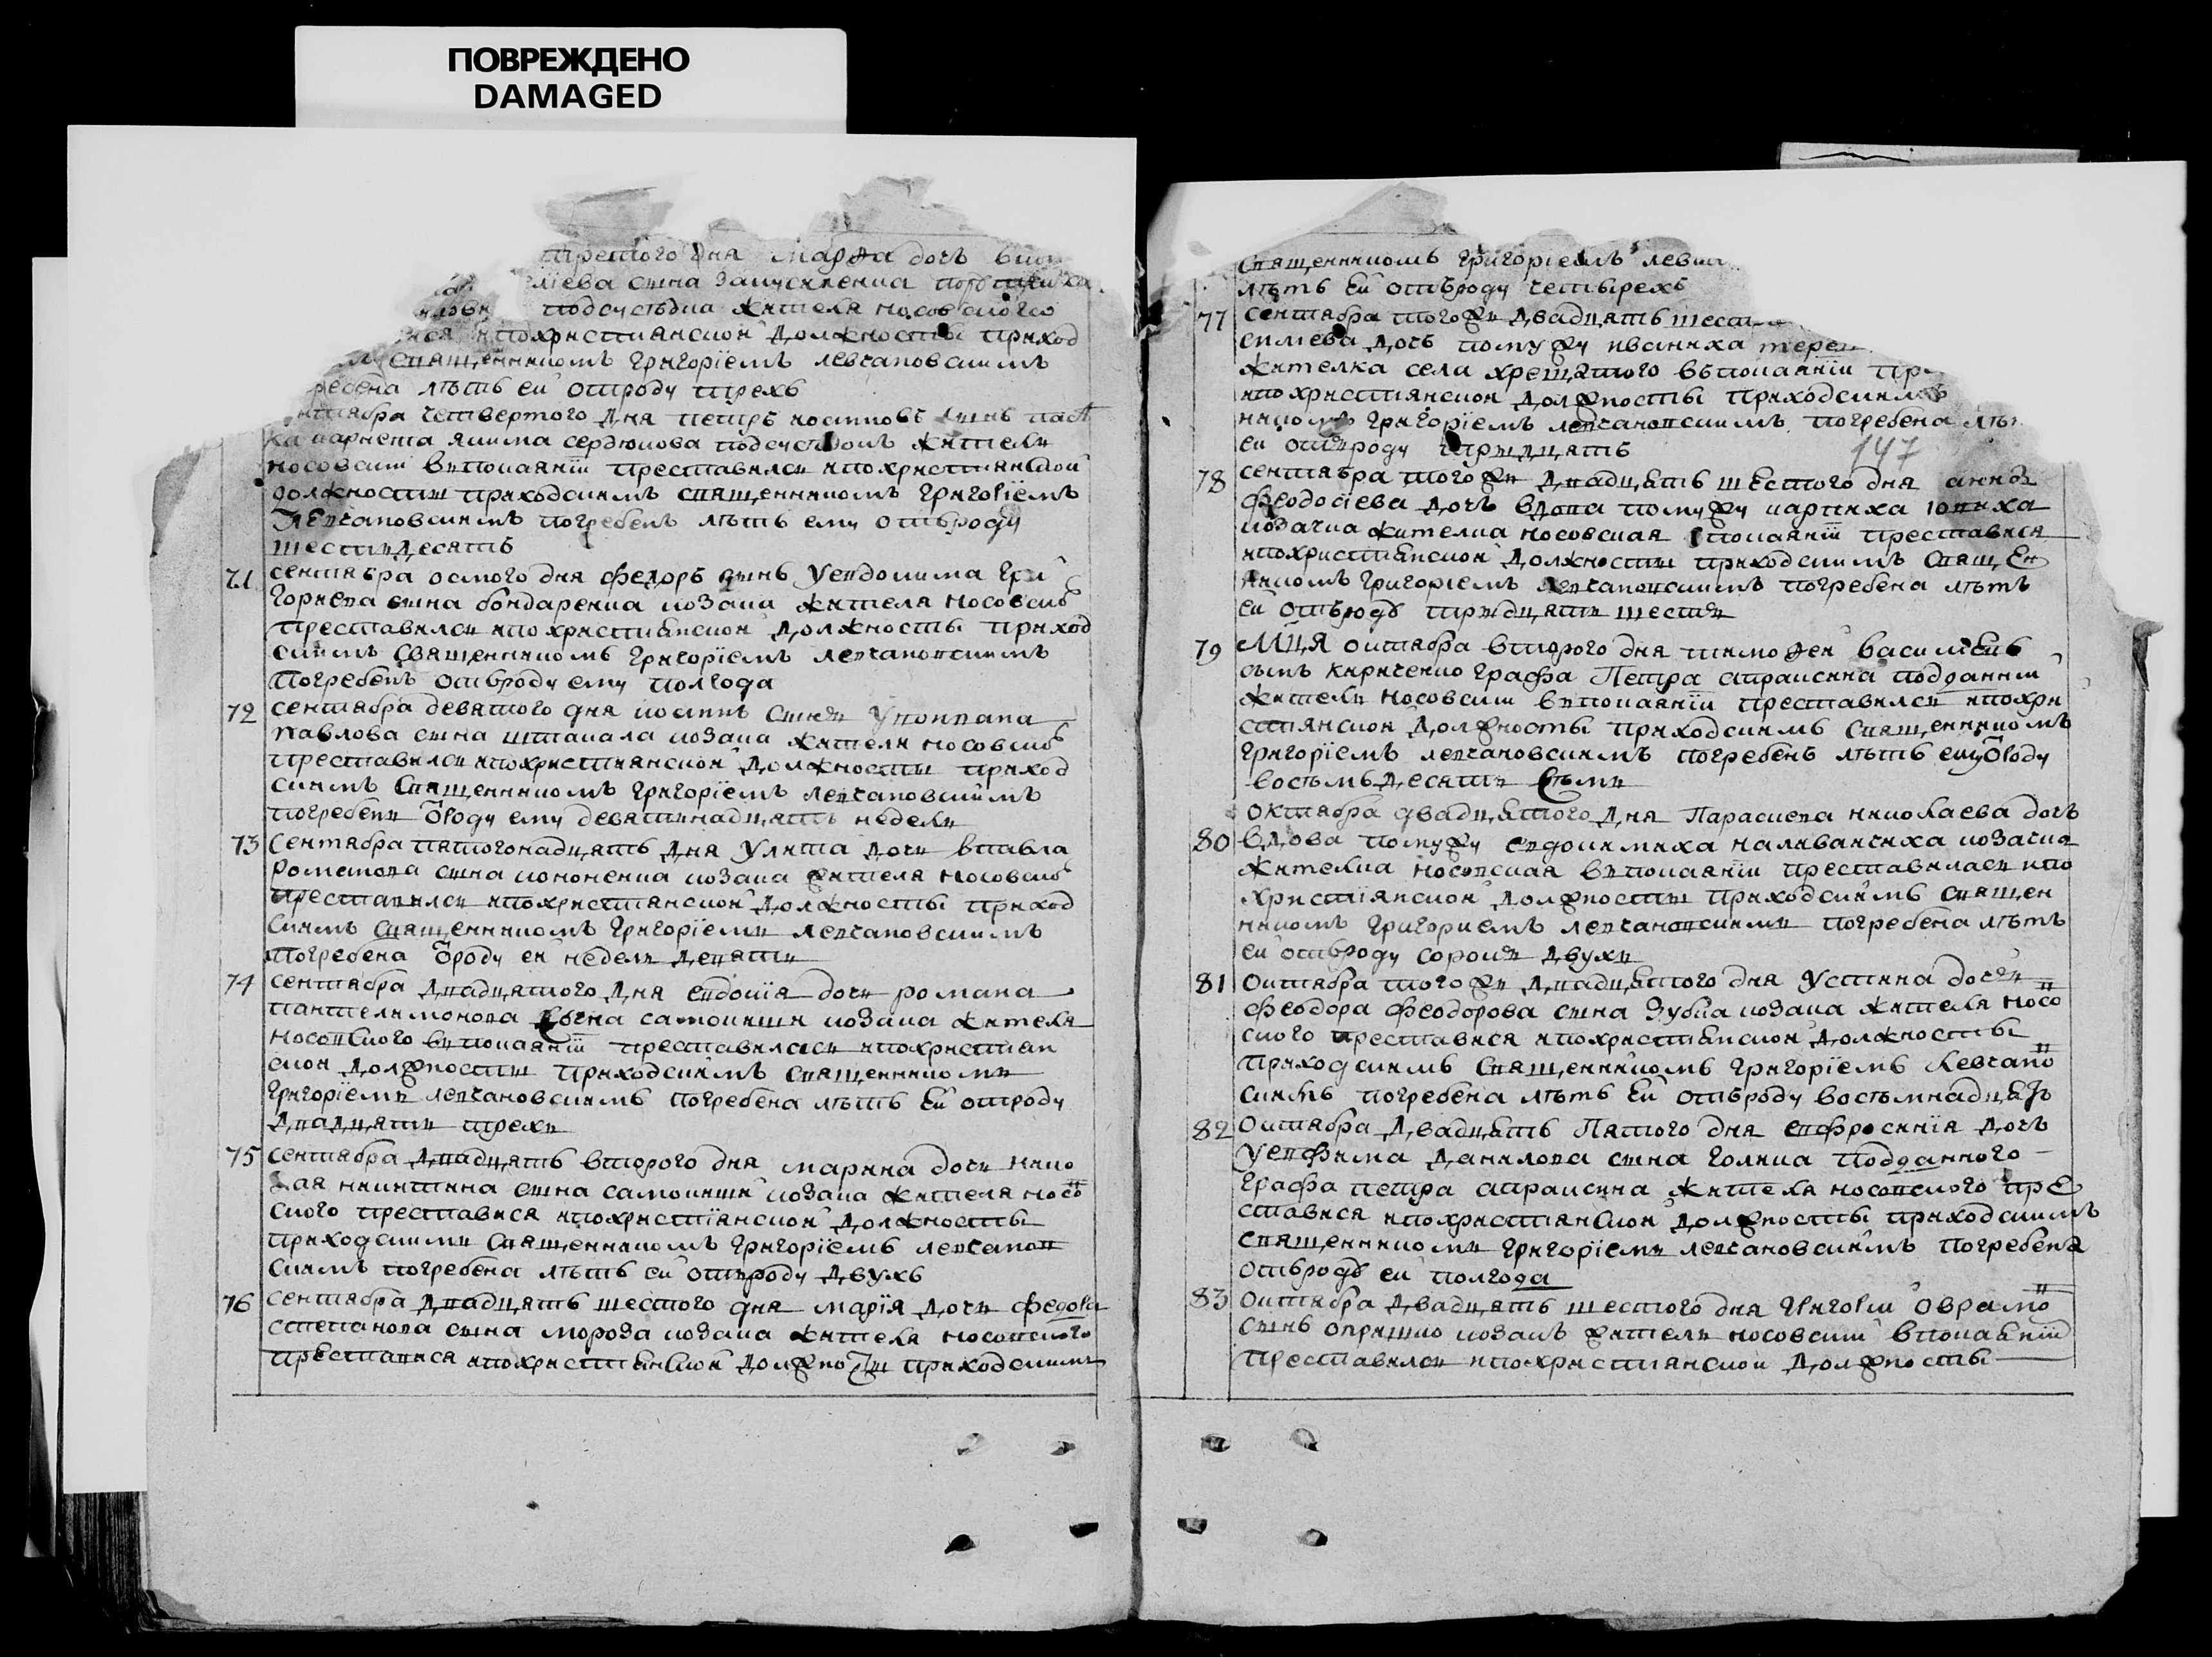 ПОВРЕЖДЕНО
DAMAGED
третого дня Марѳа дочъ
лїева сына Запускленка
подсусѣдка жителя носовского
нся ипохристиянской должносты приход
священникомъ Григорїемъ левчановскимъ
ребена лѣтъ ей отроду трехъ
нтября четвертого дня петръ
карнета якима сердюкова подсусѣдокъ жители
носовскїй въпокаянїи преставился ипохристиянской
должности приходскимъ священникомъ Григорїемъ
Левчановскимъ погребенъ лѣтъ ему отъроду
шестидесятъ
71 сентября осмого дня федоръ сынъ Уевдокима Гри
гориева сына бондаренка козака жителя носовско
преставился ипохристиянской должносты приход
скимъ священникомъ Григорїемъ левчановскимъ
Погребенъ отъроду ему полгода
72 сентября девятого дня иоаннъ сынъ
павлова сына штакала козака жителя носовско
преставился ипохристиянской должности приход
скимъ священникомъ Григорїемъ левчановскимъ
погребенъ ѿроду ему девятьнадцять недели
73 сентября пятогонадцять дня Улита дочъ впавла
сына кононенка козака жителя носовско
преставился ипохристиянской должносты приход
скимъ священникомъ Григорїемъ левчановскимъ
погребена ѿроду ей неделъ девять
74 сентября двадцятого дня евдокїя дочъ романа
пантелимонова сына самокиши козака жителя
носовского въпокаянїи преставилася ипохристиян
ской должности приходскимъ священникомъ
Григорїемъ левчановскимъ погребена лѣтъ ей отроду
Двадцяти трехъ
75 сентября двадцять второго дня марина дочъ нико
лая никитина сына самокиши козака жителя носо
ского преставися ипохристїянской должносты
приходскимъ священникомъ Григорїемъ левчанов
скимъ погребена лѣтъ ей отъроду двухъ
76 сентября двадцять шестого дня марїя дочъ федора
степанова сына мороза козака жителя носовского
преставися ипохристиянской должности приходскимъ
священникомъ Григорїемъ
лѣтъ ей отъроду четырехъ
77 сентября тогожъ двадцять
дочъ помужу иваниха
жителка села хрещатого въпокаянїи
ипохристиянской должности приходскимъ
никомъ Григорїемъ левчановскимъ погребена
ей отъроду тридцять
147
78 сентября тогожъ двадцять шестого дня анна
феодосїева дочъ вдова помужу
козачка жителка носовская покаянїи преставися
ипохристиянской должности приходскимъ священ
никомъ Григорїемъ левчановскимъ погребена лѣтъ
ей отъродъ тридцяти шести
79 Мця октября второго дня тимоѳей
сынъ кириченко графа Петра апраксина подданний
жители носовскїй въпокаянїи преставился ипохри
стиянской должности приходскимъ священникомъ
Григорїемъ левчановскимъ погребенъ лѣтъ емуѿроду
восьмъдесяти
октября двадцятого дня Параскева николаева дочъ
80 вдова помужу наливанчиха козачка
жителка носовская въпокаянїи преставиласи ипо
христїянской должности приходскимъ священ
никомъ Григориемъ левчановскимъ погребена лѣтъ
ей отъроду сорокъ двухъ
81 октября тогожъ двадцятого дня Устина дочъ
феодора феодорова сына Зубка козака жителя носо
ского преставися ипохристиянской должносты
приходскимъ священникомъ Григорїемъ Левчано
скимъ погребена лѣтъ ей отъроду восьмнадцять
82 октября двадцять Пятого дня евфросинїя дочъ
Уевфима данилова сына голика подданного
графа петра апраксина жителя носовского пре
ставися ипохристиянской должносты приходскимъ
священникомъ Григорїемъ левчановскимъ погребена
отъродъ ей полгода
83 октября двадцять шестого дня Григорїй
сынъ козакъ жители носовскїй впокаянїи
преставился ипохристиянской должносты